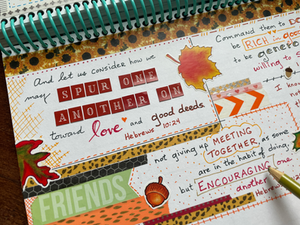 And let us consider how we
may SPUR ONE
ANOTHER ON
toward love and good deeds.
Hebrews 10:24
Command them to
be RICH in good
to be generous
willing to
not giving up MEETING
TOGETHER, as some
are in the habit of doing,
but ENCOURAGING one
another
Hebrews
FRIENDS